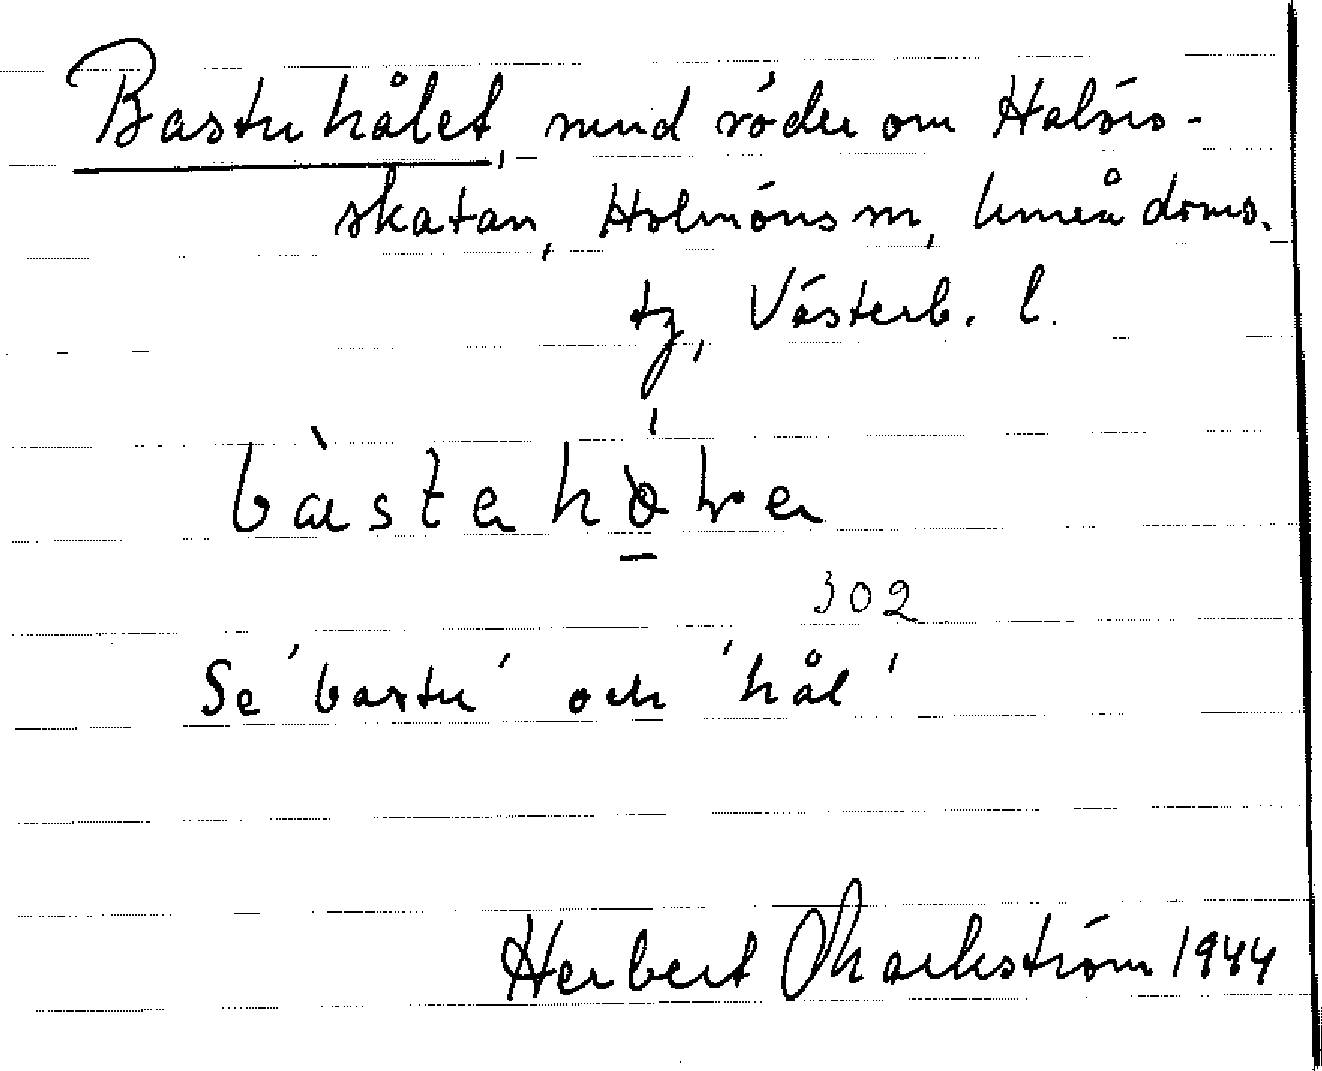 Bastuhålet, sund söder om Halörs-
skatan, Holmöns sn, Umeå doms.
tg, Västerb. l.
302
Se 'bastu' och 'hål'
Herbert Markström 1944